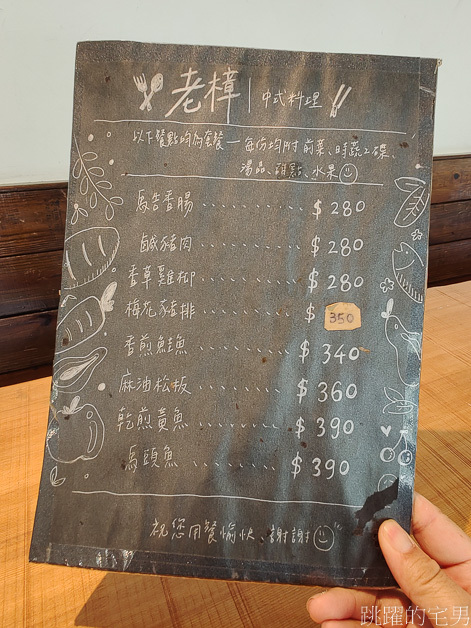 老樟 中式料理
以下餐點均為套餐一每份均附前菜、時蔬2碟、
湯品、甜點、水果
馬告香腸 ........... $280
鹹豬肉 ........... $280
香草雞柳 ........... $280
梅花豬排 ........... $350
香煎鮭魚 ........... $340
麻油松板 ........... $360
乾煎黃魚 ........... $390
馬頭魚 ........... $390
祝您用餐愉快、謝謝
跳躍的宅男